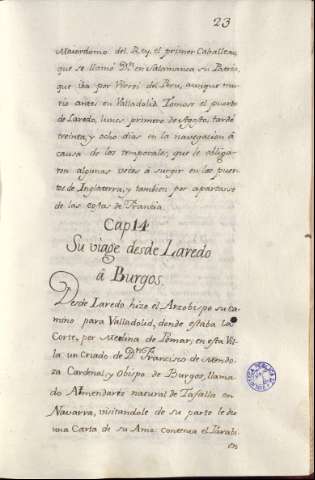 23
Mayordomo del Rey, el primer Caballero,
que se llamó Dn. en Salamanca su Patria,
que iba por Virrei del Peru, aunque mu-
rio antes en Valladolid. Tomose el puerto
de Laredo, lunes primero de Agosto, tardó
treinta, y ocho dias en la navegacion á
causa de los temporales, que le obliga-
ron algunas veces á surgir en los puer-
tos de Inglaterra, y tambien por apartarse
de las costas de Francia.
Cap 14
Su viage desde Laredo
á Burgos.
Desde Laredo hizo el Arzobispo su ca-
mino para Valladolid, donde estaba la
Corte, por Medina de Pomar; en esta Vi-
lla un Criado de Dn. Francisco de Mendo-
za Cardenal, y Obispo de Burgos, llama-
do Almendares natural de Tafalla en
Navarra, visitandole de su parte le dio
una Carta de su Amo: contenia el Parabi-
en